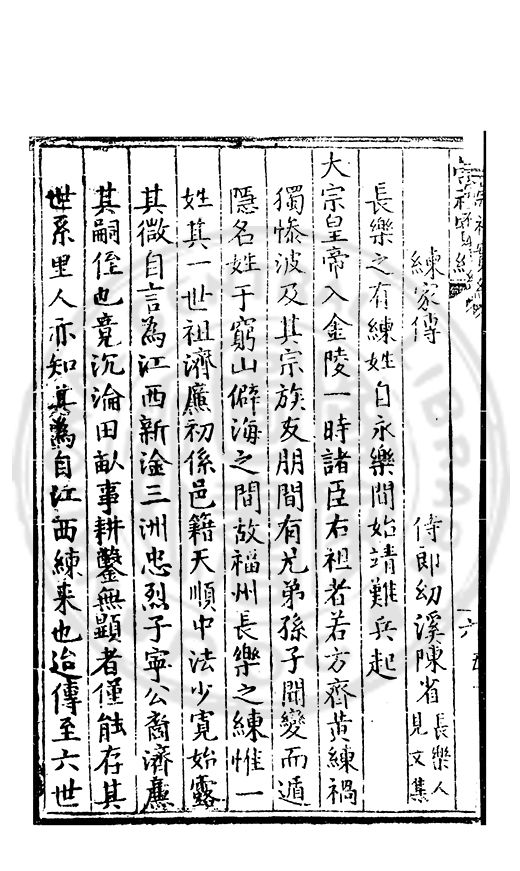 練家傳
侍郎幼溪陳省長樂人見文集
長樂之有練姓自永樂間始靖難兵起
太宗皇帝入金陵一時諸臣右袒者若方齊黃練禍
獨慘波及其宗族友朋間有兄弟孫子聞變而遁
隱名姓于窮山僻海之間故福州長樂之練惟一
姓其一世祖濟廉初係邑籍天順中法少寬始露
其微自言為江西新淦三洲忠烈子寧公裔濟廉
其嗣侄也竟沉淪田畝事耕鑿無顯者僅能存其
世系里人亦知其為自江西練來也迨傳至六世